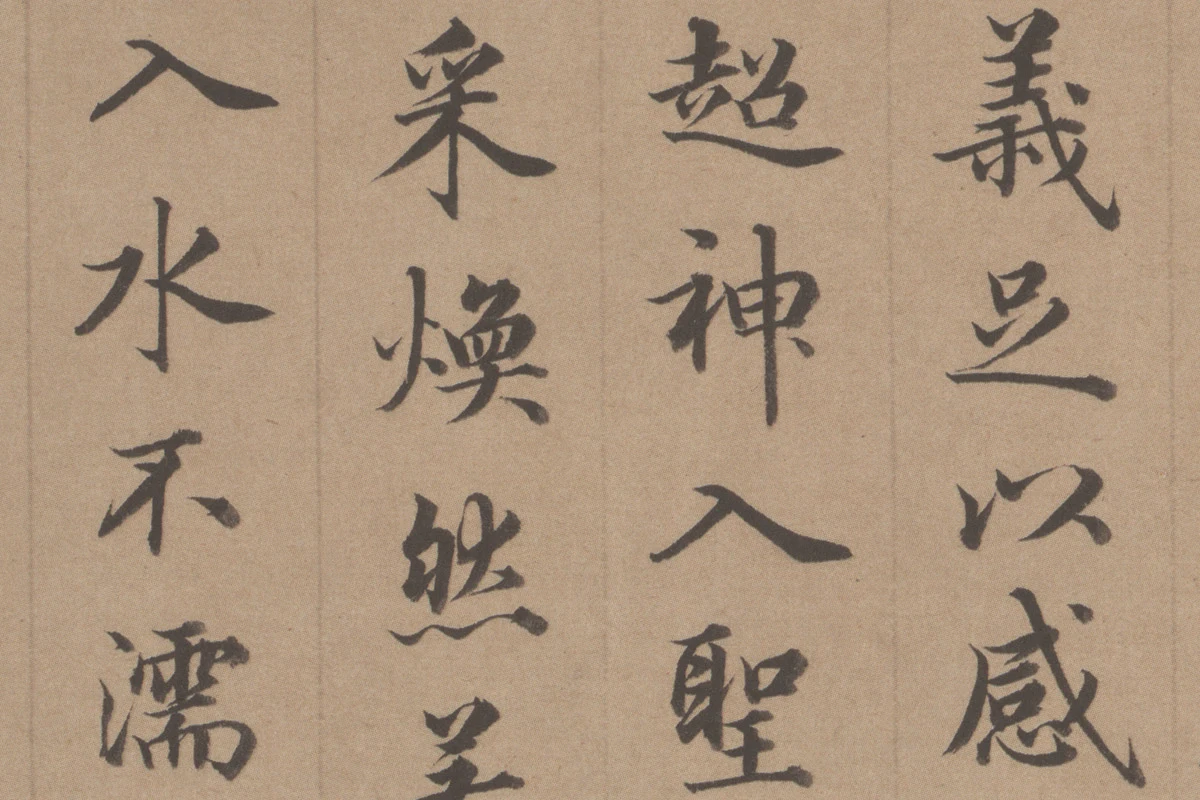 義足以感
超神入聖
采煥然
入水不濡